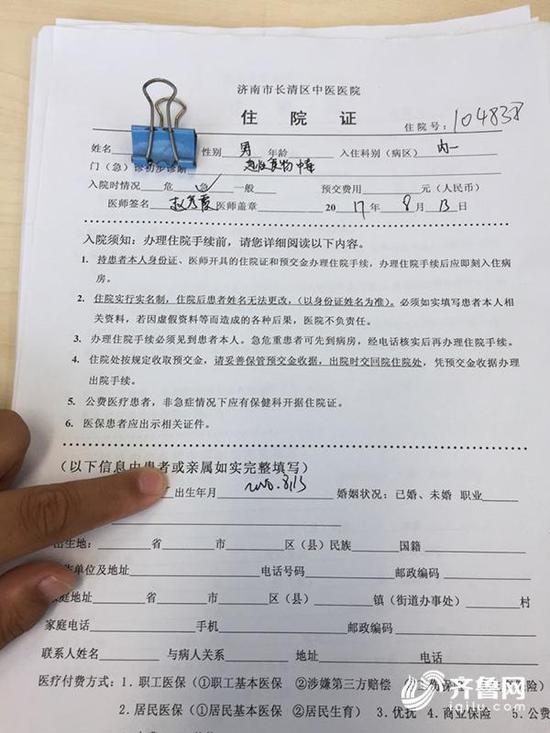 济南市长清区中医医院
住 院 证
住院号: 104838
姓名 性别 男 年龄 入住科别 (病区) 内一
门 (急) 诊初步诊断 急性食物中毒
入院时情况 危 急 ✓ 一般 预交费用 元 (人民币)
医师签名 医师盖章 2017年 8月 13日
入院须知: 办理住院手续前, 请您详细阅读以下内容。
1. 持患者本人身份证、医师开具的住院证和预交金办理住院手续, 办理住院手续后应即刻入住病
房。
2. 住院实行实名制, 住院后患者姓名无法更改, (以身份证姓名为准)。必须如实填写患者本人相
关资料, 若因虚假资料等而造成的各种后果, 医院不负责任。
3. 办理住院手续必须见到患者本人。急危重患者可先到病房, 经电话核实后再办理住院手续。
4. 住院处按规定收取预交金, 请妥善保管预交金收据, 出院时交回住院处, 凭预交金收据办理
出院手续。
5. 公费医疗患者, 非急症情况下应有保健科开据住院证。
6. 医保患者应出示相关证件。
(以下信息由患者或亲属如实完整填写)
出生年月 婚姻状况: 已婚、未婚 职业
出生地: 省 市 区 (县) 民族 国籍
作单位及地址 电话号码 邮政编码
家庭地址 省 市 区 (县) 镇 (街道办事处) 村
家庭电话 手机 邮政编码
联系人姓名 与病人关系 地址 电话
医疗付费方式: 1. 职工医保 (①职工基本医保 ②涉嫌第三方赔偿
2. 居民医保 (①居民基本医保 ②居民生育) 3. 优抚 4. 商业保险 5. 公费
齐鲁网
iqilu.com